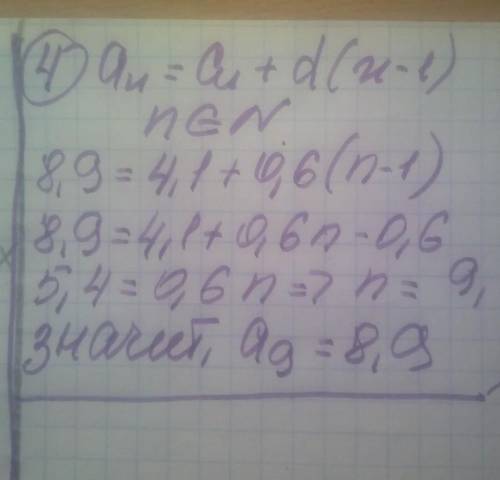 4 aₙ = a₁ + d(n-1)
n∈N
8,9 = 4,1 + 0,6(n-1)
8,9 = 4,1 + 0,6n - 0,6
5,4 = 0,6n => n = 9,
значит, a₉ = 8,9